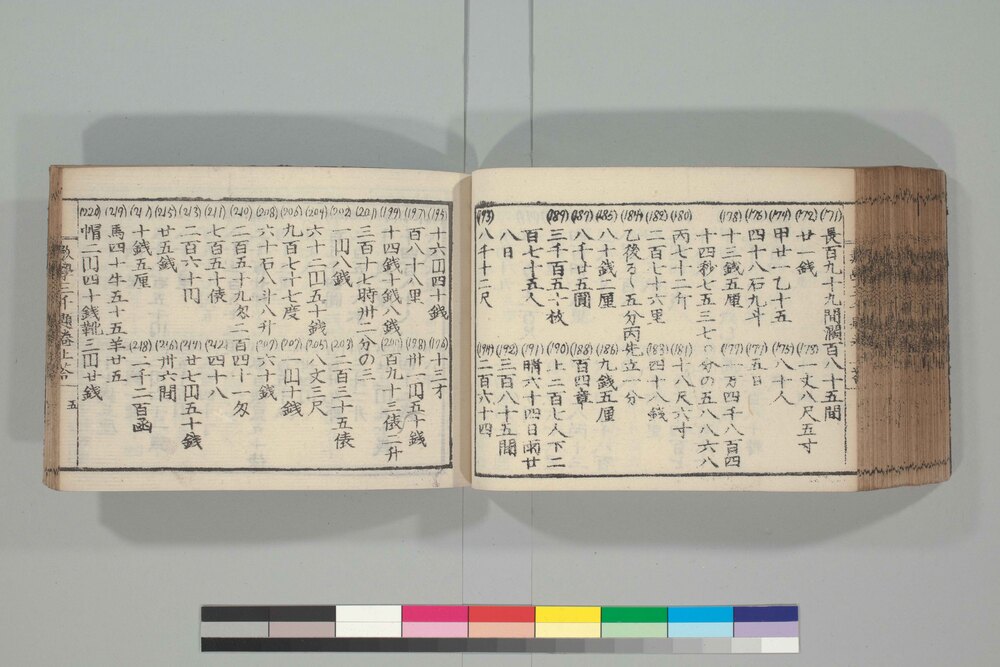 (171) 長百九十九間濶百八十五間
(172) 廿銭 (173) 一丈八尺五寸
(174) 甲廿一乙十五 (175) 八十人
(176) 四十八石九斗 (177) 十五日
(178) 十三銭五厘 (179) 一万四千八百四
十四秒七五三七〇分の五八八六八
(180) 丙七十二斤 (181) 十八尺六寸
(182) 二百七十六里 (183) 四十八銭
(184) 乙後る〻五分丙先立一分
(185) 八十銭二厘 (186) 九銭五厘
(187) 八千廿五圓 (188) 百四章
(189) 三千百五十枚 (190) 上二百七人下二
百七十五人 (191) 晴六十四日雨廿
八日 (192) 三百八十五間
(193) 八千十二尺 (194) 二百六十四
(195) 十六円四十銭 (196) 十三才
(197) 百八十八里 (198) 卅一円五十銭
(199) 十四銭十銭八銭 (200) 百九十三俵二升
(201) 三百十七時卅二分の三
(202) 一円八銭 (203) 二百三十五俵
(204) 六十二円五十銭 (205) 八丈三尺
(206) 九百七十七度 (207) 一円十銭
(208) 六十石八斗八升 (209) 六十銭
(210) 二百五十九匁二百四十一匁
(211) 七百五十俵 (212) 四十八
(213) 二百六十円 (214) 廿七円五十銭
(215) 廿五銭 (216) 卅六間
(217) 十銭五厘 (218) 二千二百函
(219) 馬四十牛五十五羊廿五
(220) 帽二円四十銭靴三円廿銭
数學三千題卷上答 五